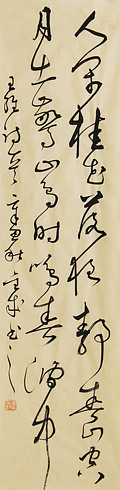 人閒桂花落夜静春山空
月出驚山鸟时鸣春涧中
王维诗 秋 书之